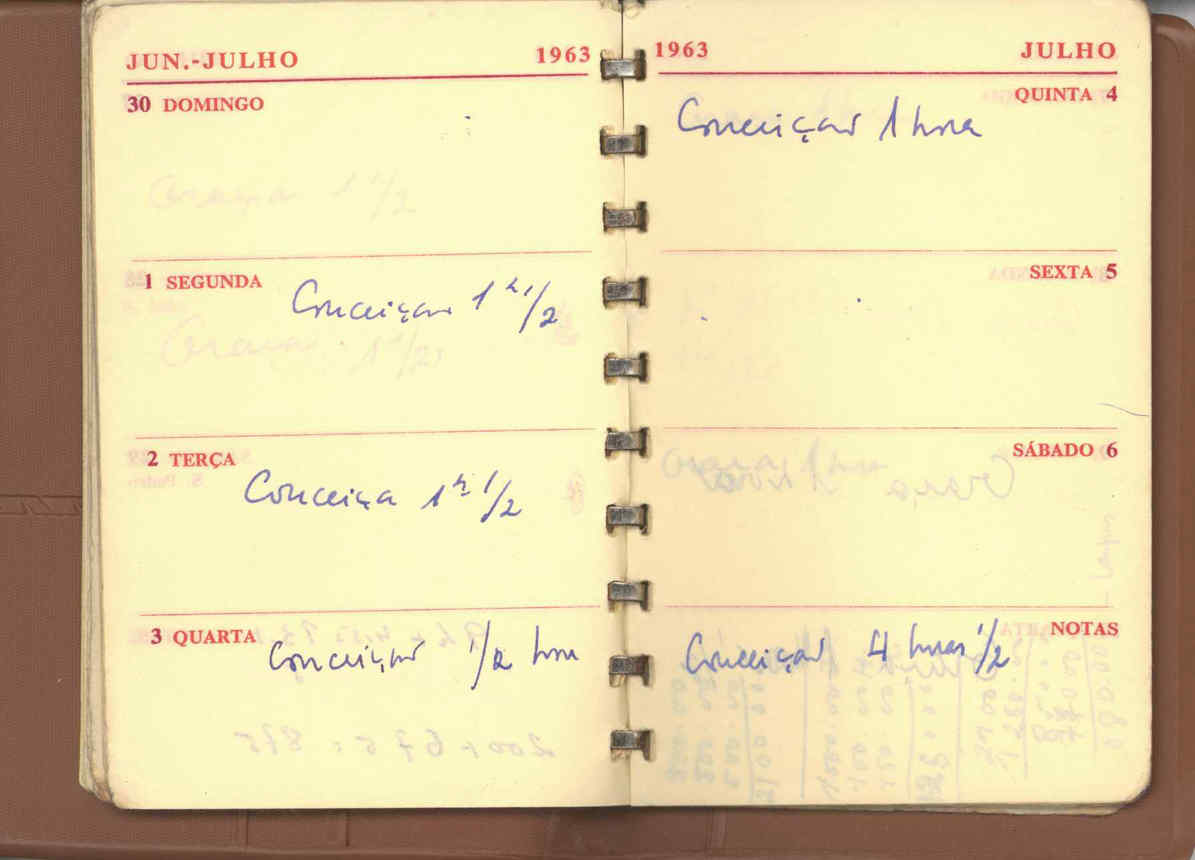 JUN.-JULHO 1963
30 DOMINGO
1 SEGUNDA
Conceiçao 1 h 1/2
2 TERÇA
Conceiça 1 h 1/2
3 QUARTA
Conceiçao 1/2 hora
1963 JULHO
QUINTA 4
Conceiçao 1 hora
SEXTA 5
SÁBADO 6
NOTAS
Conceiçao 4 horas 1/2